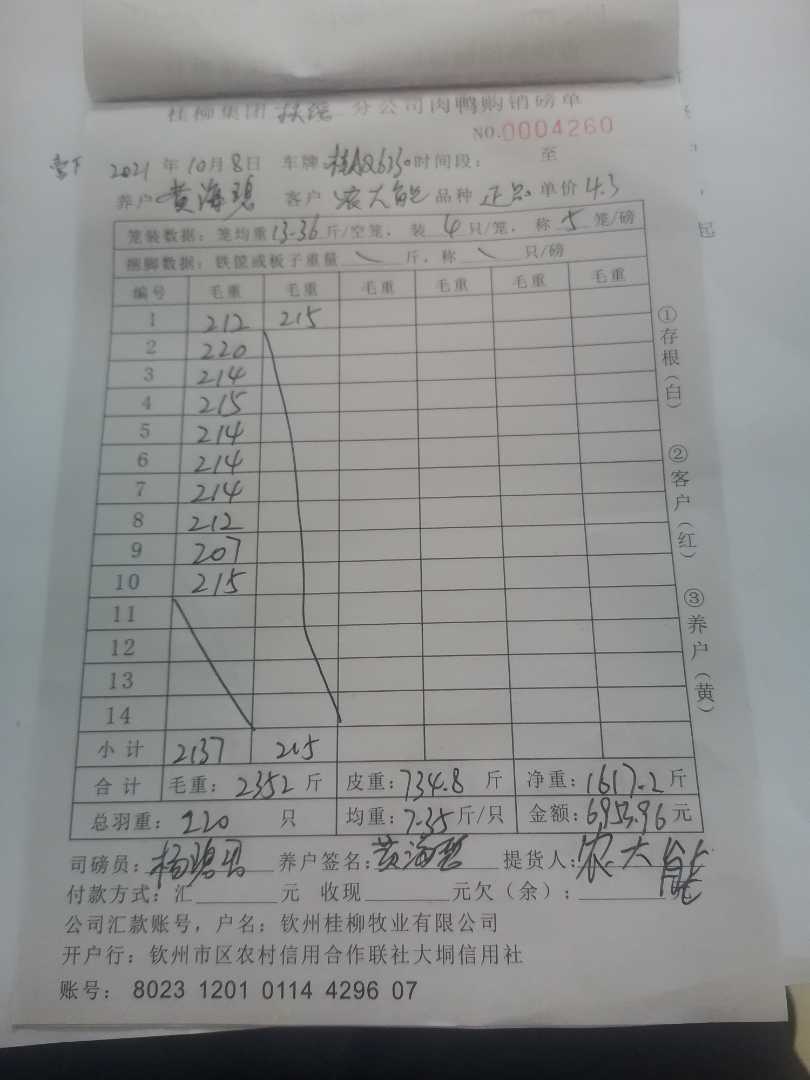 桂柳集团扶绥分公司肉鸭购销磅单
NO.0004260
2021年10月8日 车牌 时间段： 至
养户 黄海碧 客户 农大能 品种 正品 单价 4.3
笼装数据：笼均重13.36斤/空笼，装4只/笼，称5笼/磅
捆脚数据：铁筐或板子重量 斤，称 只/磅
编号 毛重 毛重 毛重 毛重 毛重 毛重
1 212 215
2 220
3 214
4 215
5 214
6 214
7 214
8 212
9 207
10 215
11
12
13
14
小计 2137 215
合计 毛重：2352斤 皮重：734.8斤 净重：1617.2斤
总羽重：220只 均重：7.35斤/只 金额：6953.96元
司磅员： 养户签名：黄海碧 提货人：农大能
付款方式：汇 元 收现 元欠（余）：
公司汇款账号，户名：钦州桂柳牧业有限公司
开户行：钦州市区农村信用合作联社大垌信用社
账号：8023 1201 0114 4296 07
①存根（白）
②客户（红）
③养户（黄）
起